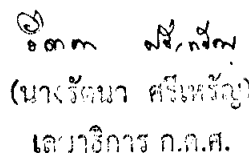 (นางรัตนา ศรีเหรัญ)
เลขาธิการ ก.ค.ศ.